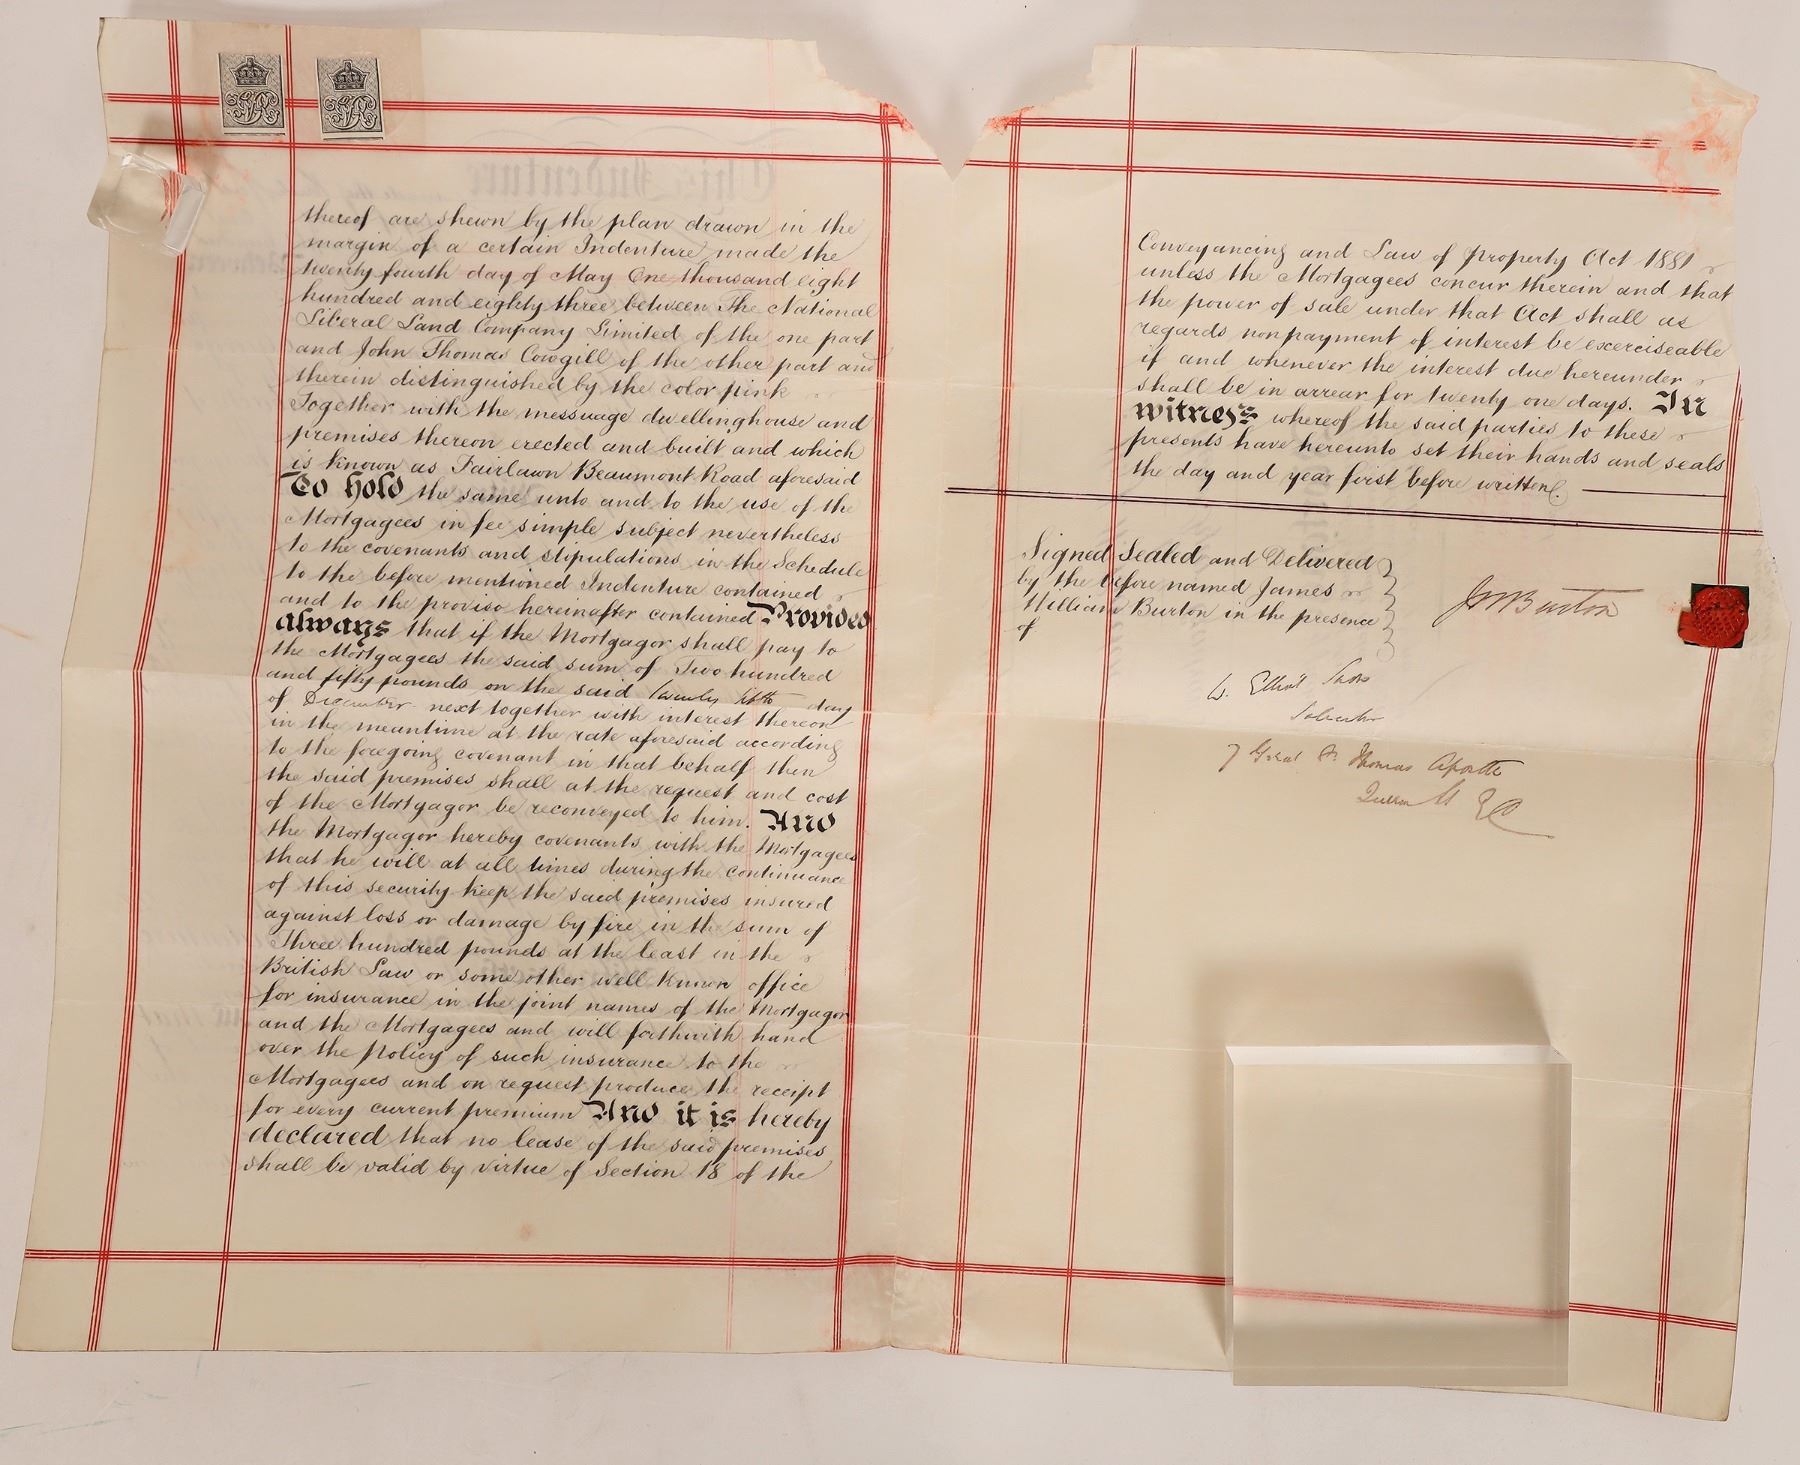 thereof are shewn by the plan drawn in the
margin of a certain Indenture made the
twenty fourth day of May One thousand eight
hundred and eighty three between The National
Liberal Land Company Limited of the one part
and John Thomas Cowgill of the other part and
therein distinguished by the color pink
Together with the messuage dwellinghouse and
premises thereon erected and built and which
is known as Fairlawn Beaumont Road aforesaid
To hold the same unto and to the use of the
Mortgagees in fee simple subject nevertheless
to the covenants and stipulations in the Schedule
to the before mentioned Indenture contained
and to the proviso hereinafter contained Provided
always that if the Mortgagor shall pay to
the Mortgagees the said sum of Two hundred
and fifty pounds on the said twenty fifth day
of December next together with interest thereon
in the meantime at the rate aforesaid according
to the foregoing covenant in that behalf then
the said premises shall at the request and cost
of the Mortgagor be reconveyed to him. And
the Mortgagor hereby covenants with the Mortgagees
that he will at all times during the continuance
of this security keep the said premises insured
against loss or damage by fire in the sum of
Three hundred pounds at the least in the
British Law or some other well known office
for insurance in the joint names of the Mortgagor
and the Mortgagees and will forthwith hand
over the Policy of such insurance to the
Mortgagees and on request produce the receipt
for every current premium And it is hereby
declared that no lease of the said premises
shall be valid by virtue of Section 18 of the
Conveyancing and Law of Property Act 1881
unless the Mortgagees concur therein and that
the power of sale under that Act shall as
regards nonpayment of interest be exerciseable
if and whenever the interest due hereunder
shall be in arrear for twenty one days. In
witness whereof the said parties to these
presents have hereunto set their hands and seals
the day and year first before written.
Signed Sealed and Delivered
by the before named James
William Burton in the presence
of
JW Burton
Solicitor
7 Great St Thomas Apostle
Queen St EC